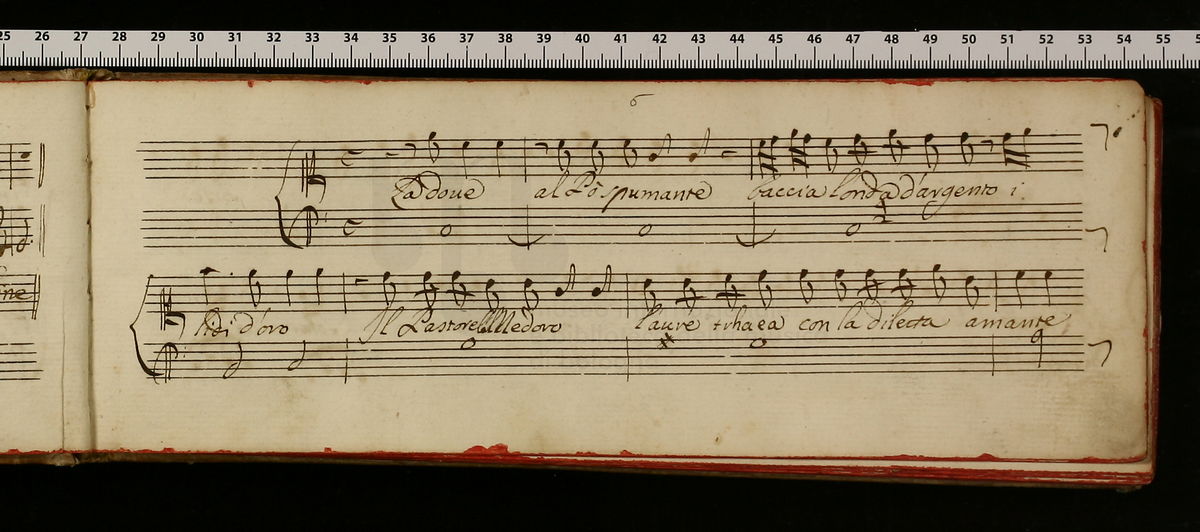 25 26 27 28 29 30 31 32 33 34 35 36 37 38 39 40 41 42 43 44 45 46 47 48 49 50 51 52 53 54 55
6
7.
La doue al Pò spumante baccia londa d'argento i
ne
lidi d'oro Il Pastorel
laure con la dilecta amante